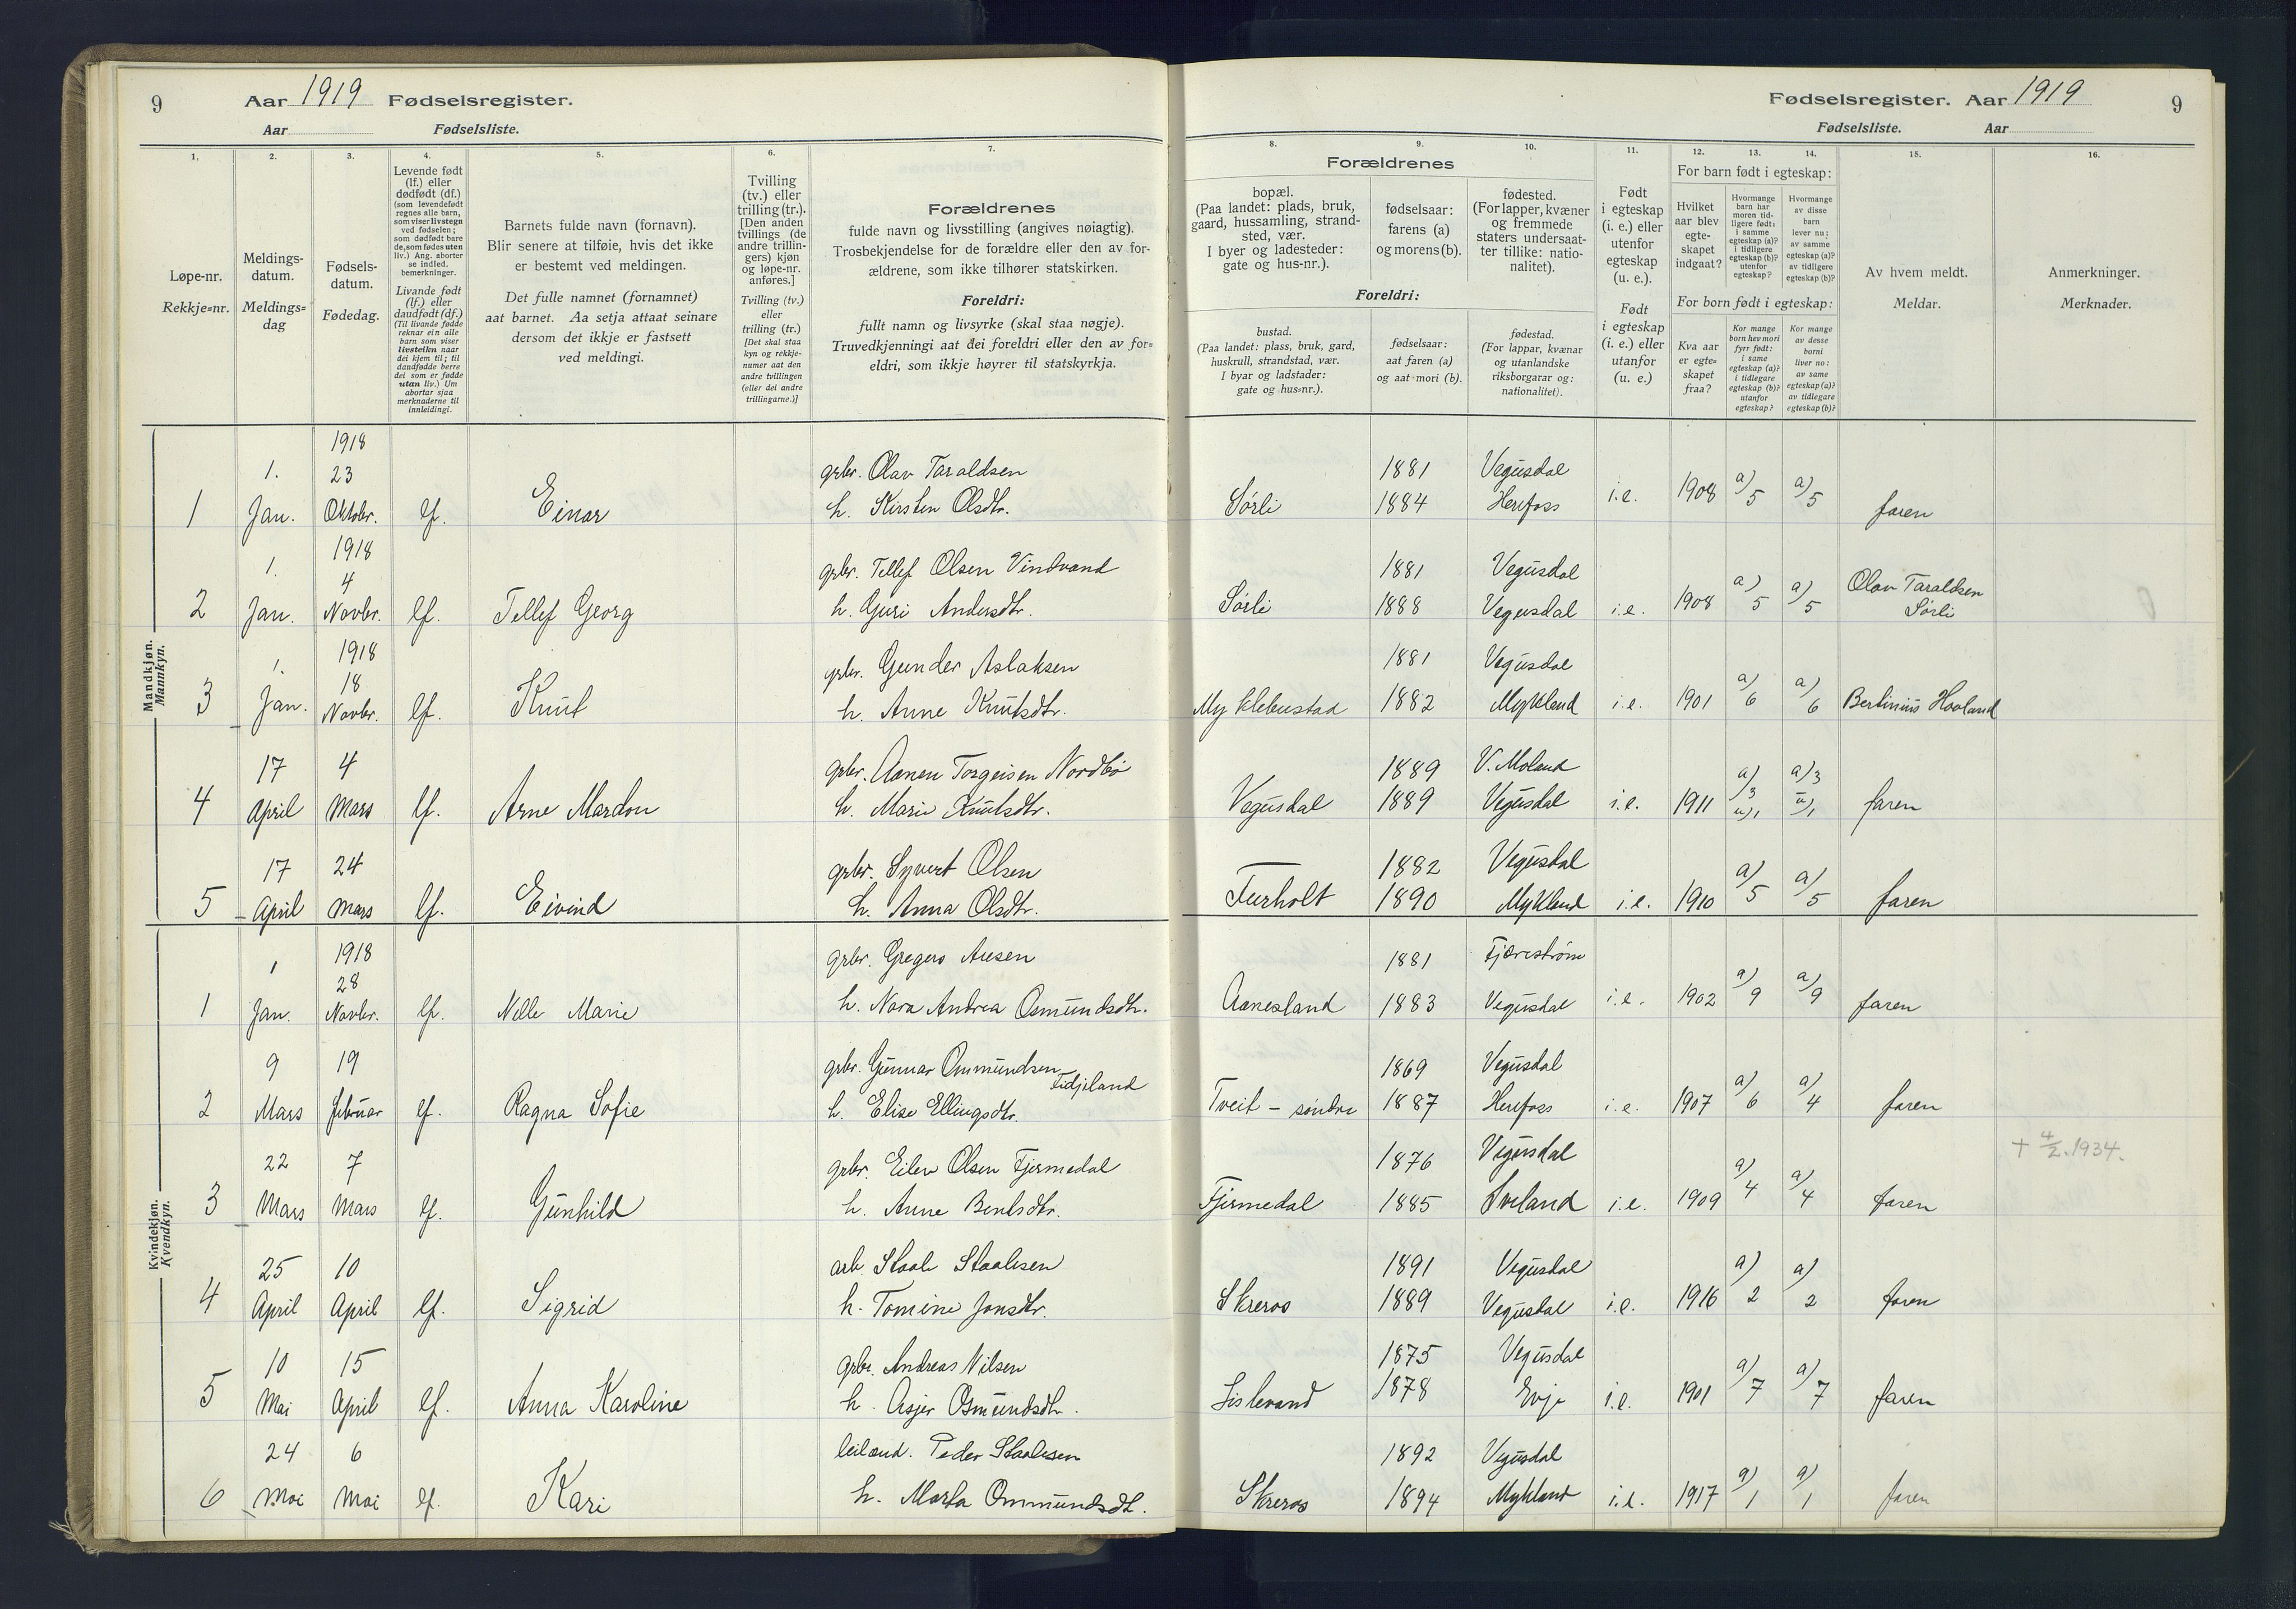 9
Aar 1919 Fødselsregister.
Aar Fødselsliste.
1.
2.
3.
4.
5.
6.
7.
Løpe-nr.
Rekkje=nr.
Meldings-
datum.
Meldings=
dag
Fødsels-
datum.
Fødedag.
Levende født
(lf.) eller
dødfødt (df.)
(som levendefødt
regnes alle barn,
som viser livstegn
ved fødselen;
som dødfødt bare
de, som fødes uten
liv.) Ang. aborter
se indled.
bemerkninger.
Livande født
(lf.) eller
daudfødt (df.)
(Til livande fødde
reknar ein alle
barn som viser
livsteikn naar
dei kjem til; til
daudfødde berre
dei som er fødde
utan liv.) Um
abortar sjaa
merknaderne til
innleidingi.
Barnets fulde navn (fornavn).
Blir senere at tilføie, hvis det ikke
er bestemt ved meldingen.
Det fulle namnet (fornamnet)
aat barnet. Aa setja attaat seinare
dersom det ikkje er fastsett
ved meldingi.
Tvilling
(tv.) eller
trilling (tr.).
[Den anden
tvillings (de
andre trillin-
gers) kjøn
og løpe-nr.
anføres.]
Tvilling (tv.)
eller
trilling (tr.)
[Det skal staa
kyn og rekkje-
numer aat den
andre tvillingen
(eller dei andre
trillingarne.)]
Forældrenes
fulde navn og livsstilling (angives nøiagtig).
Trosbekjendelse for de forældre eller den av for-
ældrene, som ikke tilhører statskirken.
Foreldri:
fullt namn og livsyrke (skal staa nøgje).
Truvedkjenningi aat dei foreldri eller den av for=
eldri, som ikkje høyrer til statskyrkja.
Mandkjøn.
Mannkyn.
1918
1. 23 grbr. Olav Taraldsen
1 Jan. Oktobr. lf. Einar h. Kirsten Olsdtr.
1918
1. 4 grbr. Tellef Olsen Vindvand
2 Jan. Novbr. lf. Tellef Georg h. Guri Andersdtr.
1918
1. 18 grbr. Gunder Aslaksen
3 Jan. Novbr. lf. Knut h. Anne Knutsdtr.
17 4 grbr. Aanen Torgeisen Nordbø
4 April Mars lf. Arne Mardon h. Marie Knutsdtr.
17 24 grbr. Syvert Olsen
5 April Mars lf. Eivind h. Anna Olsdtr.
Kvindekjøn.
Kvendkyn.
1918
1 28 grbr. Gregers Aresen
1 Jan. Novbr. lf. Nelle Marie h. Nora Andrea Osmundsdtr.
9 19 grbr. Gunnar Ommundsen Fidjeland
2 Mars februar lf. Ragna Sofie h. Elise Ellingsdtr.
22 7 grbr. Eilev Olsen Fjermedal
3 Mars Mars lf. Gunhild h. Anne Bentsdtr.
25 10 arb. Staale Staalesen
4 April April lf. Sigrid h. Tomine Jonsdtr.
10 15 grbr. Andreas Nilsen
5 Mai April lf. Anna Karoline h. Asjer Osmundsdtr.
24 6 leilænd. Peder Staalesen
6 Mai Mai lf. Kari h. Marta Ommundsdtr.
Fødselsregister. Aar 1919
9
Fødselsliste. Aar
8.
9.
10.
11.
12.
13.
14.
15.
16.
Forældrenes
bopæl.
(Paa landet: plads, bruk,
gaard, hussamling, strand-
sted, vær.
I byer og ladesteder:
gate og hus-nr.).
fødselsaar:
farens (a)
og morens (b).
fødested.
(For lapper, kvæner
og fremmede
staters undersaat-
ter tillike: natio-
nalitet).
Foreldri:
bustad.
(Paa landet: plass, bruk, gard,
huskrull, strandstad, vær.
I byar og ladstader:
gate og hus=nr.).
fødselsaar:
aat faren (a)
og aat mori (b).
fødestad.
(For lappar, kvænar
og utanlandske
riksborgarar og:
nationalitet).
Født
i egteskap
(i. e.) eller
utenfor
egteskap
(u. e.).
Født
i egteskap
(i. e.) eller
utanfor
(u. e.)
For barn født i egteskap:
Hvilket
aar blev
egte-
skapet
indgaat?
Hvormange
barn har
moren tid-
ligere født:
i samme
egteskap (a)?
i tidligere
egteskap (b)?
utenfor
egteskap?
Hvormange
av disse
barn
lever nu:
av samme
egteskap (a)?
av tidligere
egteskap (b)?
For born født i egteskap:
Kva aar
er egte=
skapet
fraa?
Kor mange
born hev mori
fyrr født:
i same
egteskap (a)?
i tidlegare
egteskap (b)?
utanfor
egteskap?
Kor mange
av desse
borni
liver no:
av same
egteskap (a)?
av tidlegare
egteskap (b)?
Av hvem meldt.
Meldar.
Anmerkninger.
Merknader.
1881 Vegusdal
Sørli 1884 Herefoss i.e. 1908 a) 5 a) 5 faren
1881 Vegusdal
Sørli 1888 Vegusdal i.e. 1908 a) 5 a) 5 Olav Taraldsen
Sørli
1881 Vegusdal
Myklebustad 1882 Mykland i.e. 1901 a) 6 a) 6 Bertinius Hovland
1889 V. Moland a) 3 a) 3
Vegusdal 1889 Vegusdal i.e. 1911 u) 1 u) 1 faren
1882 Vegusdal
Furholt 1890 Mykland i.e. 1910 a) 5 a) 5 faren
1881 Fjærestrøm
Aanesland 1883 Vegusdal i.e. 1902 a) 9 a) 9 faren
1869 Vegusdal
Tveit - søndre 1887 Herefoss i.e. 1907 a) 6 a) 4 faren
1876 Vegusdal + 4/2. 1934.
Fjermedal 1885 Iveland i.e. 1909 a) 4 a) 4 faren
1891 Vegusdal
Skreros 1889 Vegusdal i.e. 1916 a) 2 a) 2 faren
1875 Vegusdal
Lislevand 1878 Evje i.e. 1901 a) 7 a) 7 faren
1892 Vegusdal
Skreros 1894 Mykland i.e. 1917 a) 1 a) 1 faren